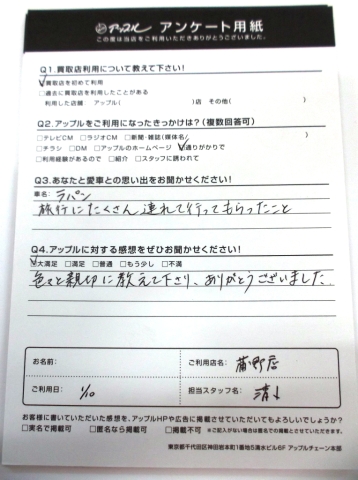 アップル アンケート用紙
この度は当店をご利用いただきありがとうございました。
Q1.買取店利用について教えて下さい!
☑買取店を初めて利用
□過去に買取店を利用したことがある
利用した店舗 アップル( )店 その他( )
Q2.アップルをご利用になったきっかけは?(複数回答可)
□テレビCM □ラジオCM □新聞・雑誌(媒体名 )
□チラシ □DM □アップルのホームページ ☑通りがかりで
□利用経験があるので □紹介 □スタッフに誘われて
Q3.あなたと愛車との思い出をお聞かせください!
車名: ラパン
旅行にたくさん連れて行ってもらったこと
Q4.アップルに対する感想をぜひお聞かせください!
☑大満足 □満足 □普通 □もう少し □不満
色々と親切に教えて下さり、ありがとうございました。
お名前: ご利用店名: 蒲野店
ご利用日: 1/10 担当スタッフ名: 清水
お客様に書いていただいた感想を、アップルHPや広告に掲載させていただいてもよろしいでしょうか?
□実名で掲載可 □匿名なら掲載可 □掲載不可 ※ご記入がない場合は匿名での掲載とさせていただきます。
東京都千代田区神田岩本町1番地5清水ビル6F アップルチェーン本部